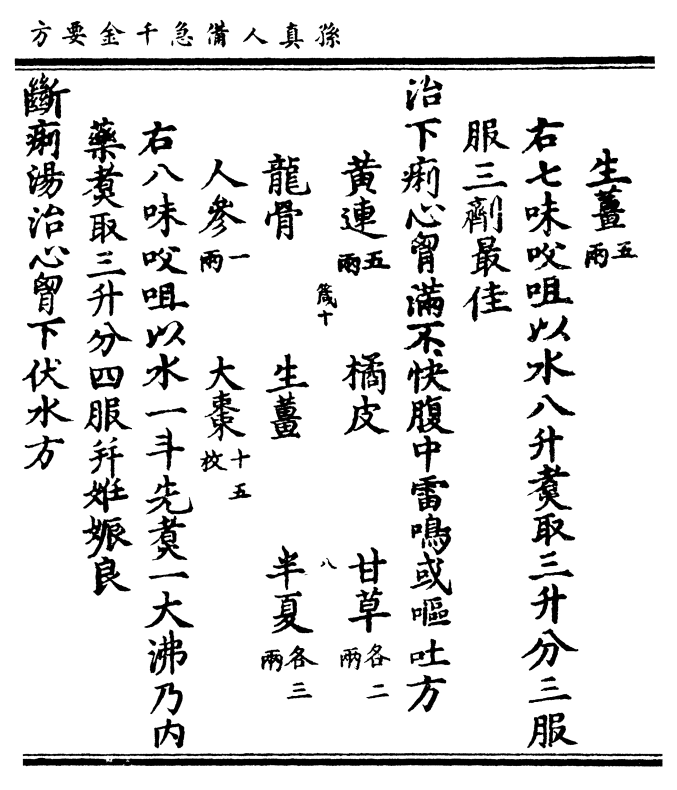 孫真人備急千金要方
生薑五兩
右七味㕮咀以水八升煑取三升分三服
服三劑最佳
治下痢心胷滿不快腹中雷鳴或嘔吐方
黃連五兩 橘皮 甘草各二兩
箴十 八
龍骨 生薑 半夏各三兩
人參一兩 大棗十五枚
右八味㕮咀以水一斗先煑一大沸乃内
藥煑取三升分四服并妊娠良
斷痢湯治心胷下伏水方